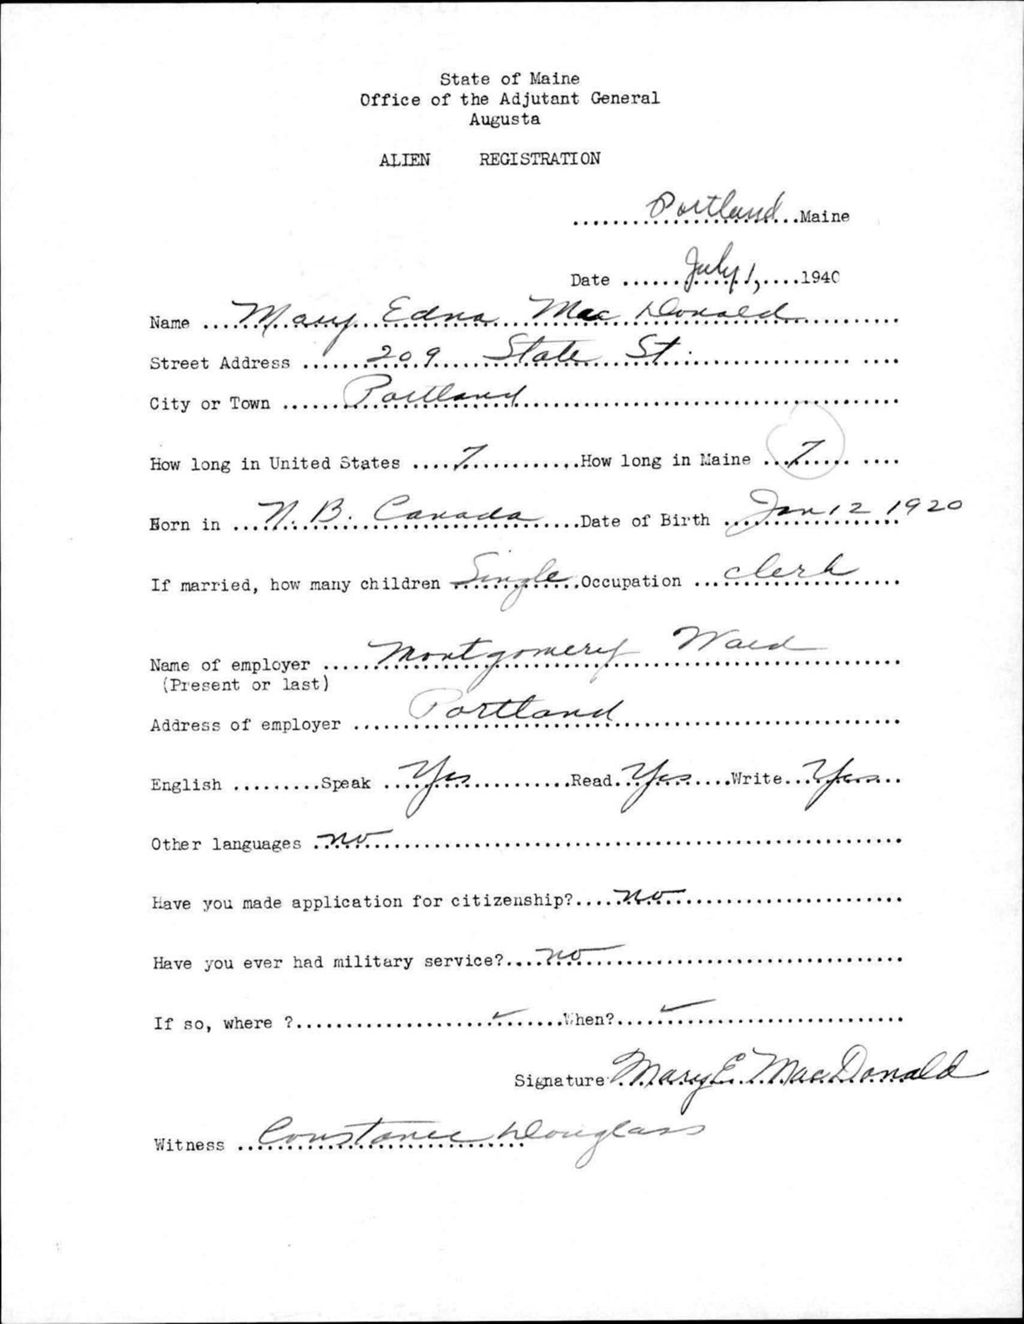 State of Maine
Office of the Adjutant General
Augusta
ALIEN REGISTRATION
.......Portland...Maine
Date ......July 1,....1940
Name ...Mary Edna Mac Donald..........
Street Address .....209 State St. ............ ....
City or Town ......Portland...............................
How long in United States ....7............How long in Maine ...7..... ....
Born in ...N. B. Canada.....Date of Birth ...Jan 12 1920
If married, how many children Single.Occupation ...clerk.....
Name of employer .....Montgomery Ward........
(Present or last)
Address of employer .....Portland..........................
English .........Speak ...Yes...........Read.Yes....Write..Yes..
Other languages .no.................................................
Have you made application for citizenship?....no......................
Have you ever had military service?....no..............................
If so, where ?...................✓......When?....✓......................
Signature Mary E. MacDonald
Witness ..Constance Douglass